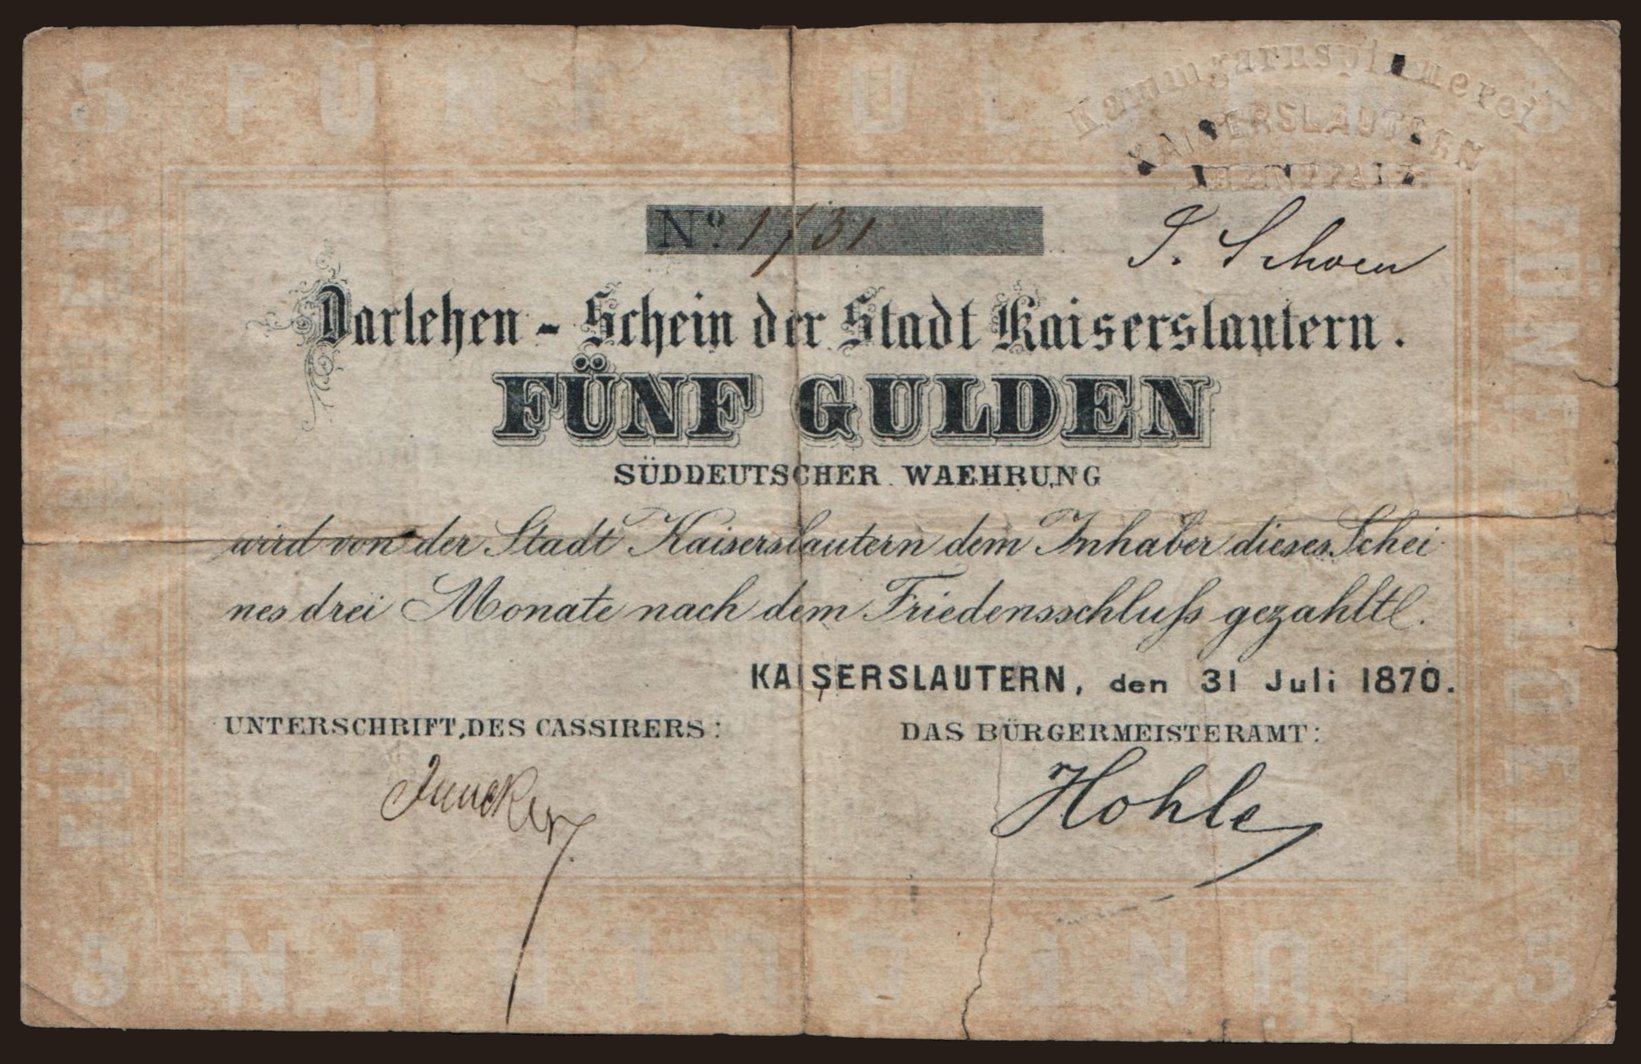 5 FÜNF GULDEN 5
Kammgarnspinnerei
KAISERSLAUTERN
RHEINPFALZ.
No. 1731
J. Schoen
Darlehen - Schein der Stadt Kaiserslautern.
FÜNF GULDEN
SÜDDEUTSCHER WAEHRUNG
wird von der Stadt Kaiserslautern dem Inhaber dieses Schei
nes drei Monate nach dem Friedensschluſs gezahlt.
KAISERSLAUTERN, den 31 Juli 1870.
UNTERSCHRIFT DES CASSIRERS:
DAS BÜRGERMEISTERAMT:
Juncker
Hohle
FÜNF GULDEN
FÜNF GULDEN
5 FÜNF GULDEN 5